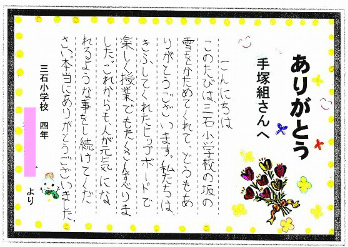 ありがとう
手塚組さんへ
こんにちは。
このたびは三石小学校の坂の
雪をかためてくれて、どうもあ
りがとうございます。私たちは、
きふしてくれたヒップボードで
楽しく授業でもたくさん思いま
した。これからも人が元気にな
れるような事をし続けてくだ
さい。本当にありがとうございました。
三石小学校 四年
より